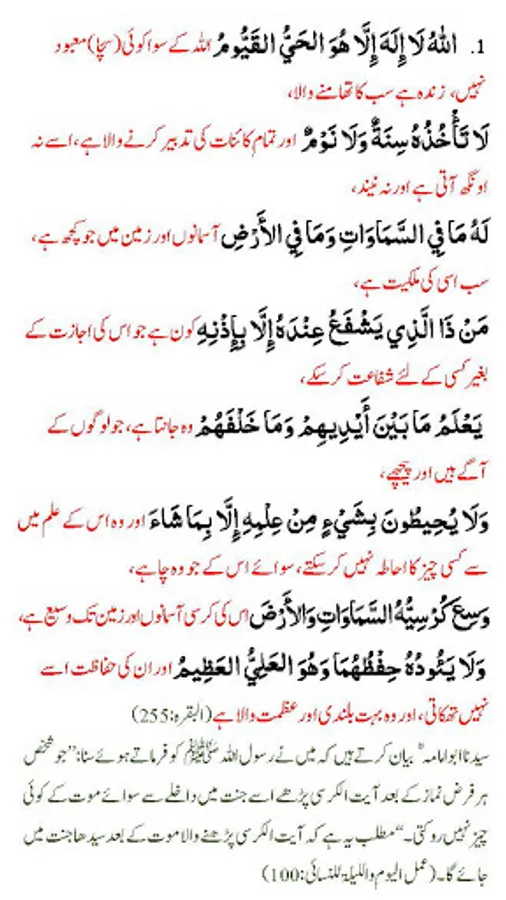 1. اللهُ لَا إِلَهَ إِلَّا هُوَ الحَيُّ القَيُّومُ اللہ کے سوا کوئی (سچا) معبود
نہیں، زندہ ہے سب کا تھامنے والا،
لَا تَأْخُذُهُ سِنَةٌ وَلَا نَوْمٌ اور تمام کائنات کی تدبیر کرنے والا ہے، اسے نہ
اونگھ آتی ہے اور نہ نیند،
لَهُ مَا فِي السَّمَاوَاتِ وَمَا فِي الأَرْضِ آسمانوں اور زمین میں جو کچھ ہے،
سب اسی کی ملکیت ہے،
مَنْ ذَا الَّذِي يَشْفَعُ عِنْدَهُ إِلَّا بِإِذْنِهِ کون ہے جو اس کی اجازت کے
بغیر کسی کے لئے شفاعت کرسکے،
يَعْلَمُ مَا بَيْنَ أَيْدِيهِمْ وَمَا خَلْفَهُمْ وہ جانتا ہے، جو لوگوں کے
آگے ہیں اور پیچھے،
وَلَا يُحِيطُونَ بِشَيْءٍ مِنْ عِلْمِهِ إِلَّا بِمَا شَاءَ اور وہ اس کے علم میں
سے کسی چیز کا احاطہ نہیں کرسکتے، سوائے اس کے جو وہ چاہے،
وَسِعَ كُرْسِيُّهُ السَّمَاوَاتِ وَالأَرْضَ اس کی کرسی آسمانوں اور زمین تک وسیع ہے،
وَلَا يَئُودُهُ حِفْظُهُمَا وَهُوَ العَلِيُّ العَظِيمُ اور ان کی حفاظت اسے
نہیں تھکاتی، اور وہ بہت بلندی اور عظمت والا ہے (البقرہ:255)
سیدنا ابوامامہؓ بیان کرتے ہیں کہ میں نے رسول اللہ ﷺ کو فرماتے ہوئے سنا: ”جو شخص
ہر فرض نماز کے بعد آیت الکرسی پڑھے اسے جنت میں داخلے سے سوائے موت کے کوئی
چیز نہیں روکتی۔“ مطلب یہ ہے کہ آیت الکرسی پڑھنے والا موت کے بعد سیدھا جنت میں
جائے گا۔ (عمل الیوم واللیلۃ للنسائی:100)